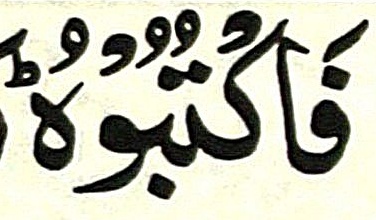 فَاكْتُبُوْهُ ؕ